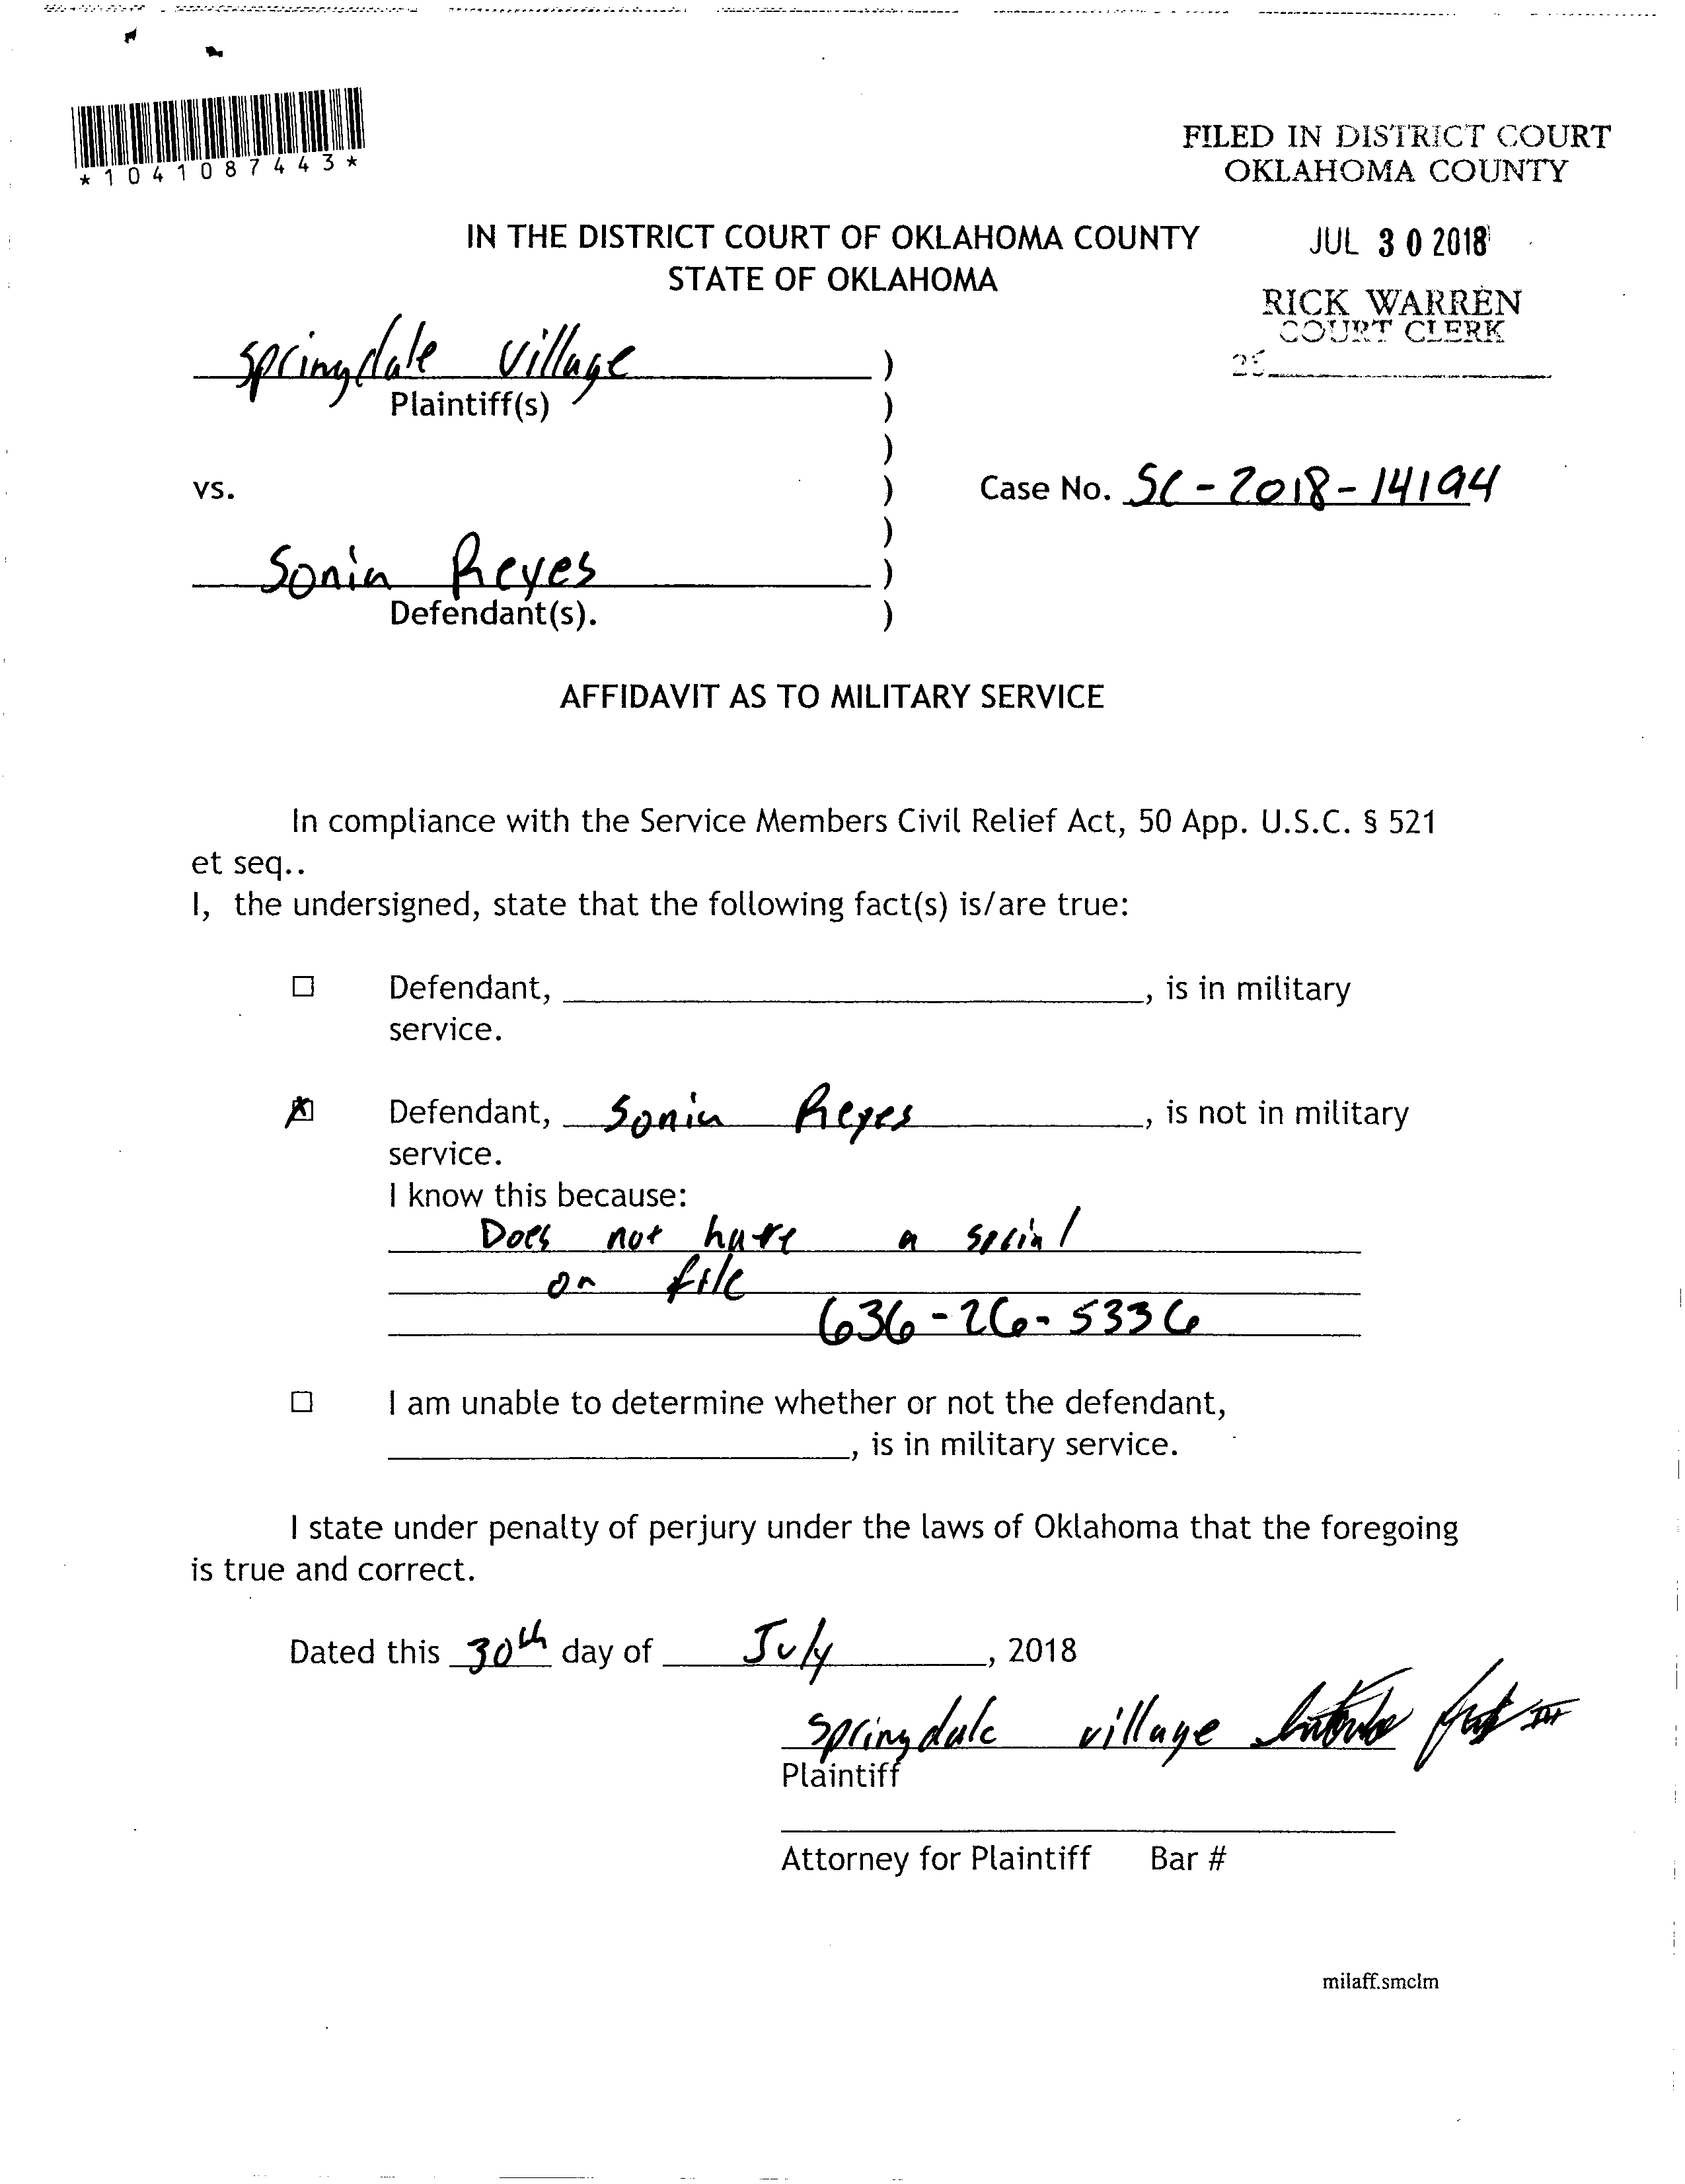 *1041087443*
FILED IN DISTRICT COURT
OKLAHOMA COUNTY
IN THE DISTRICT COURT OF OKLAHOMA COUNTY
STATE OF OKLAHOMA
JUL 30 2018
RICK WARREN
COURT CLERK
Springdale Village )
Plaintiff(s) )
)
vs. )
Case No. SC-2018-14194
)
Sonia Reyes )
Defendant(s). )
AFFIDAVIT AS TO MILITARY SERVICE
In compliance with the Service Members Civil Relief Act, 50 App. U.S.C. § 521
et seq..
I, the undersigned, state that the following fact(s) is/are true:
☐ Defendant, ____________________, is in military
service.
☒ Defendant, Sonia Reyes, is not in military
service.
I know this because:
Does not have a social
on file
636-26-5336
☐ I am unable to determine whether or not the defendant,
____________________, is in military service.
I state under penalty of perjury under the laws of Oklahoma that the foregoing
is true and correct.
Dated this 30th day of July, 2018
Springdale village III
Plaintiff
Attorney for Plaintiff Bar #
milaff.smclm